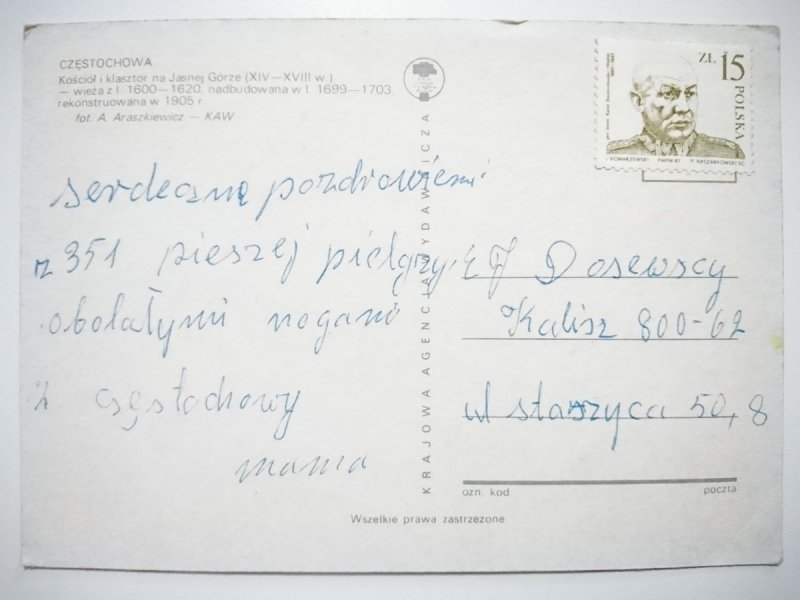 CZĘSTOCHOWA
Kościół i klasztor na Jasnej Górze (XIV—XVIII w.)
— wieża z l. 1600—1620, nadbudowana w l. 1699—1703,
rekonstruowana w 1905 r.
fot. A. Araszkiewicz — KAW
serdeczne pozdrowieni
z 351 pieszej pielgrzy.
obolałymi nogami
z częstochowy
mama
KRAJOWA AGENCJA WYDAWNICZA
ZŁ 15
POLSKA
PWPW 87
E J Dosewscy
Kalisz 800-62
ul staszyca 50, 8
ozn. kod
poczta
Wszelkie prawa zastrzeżone